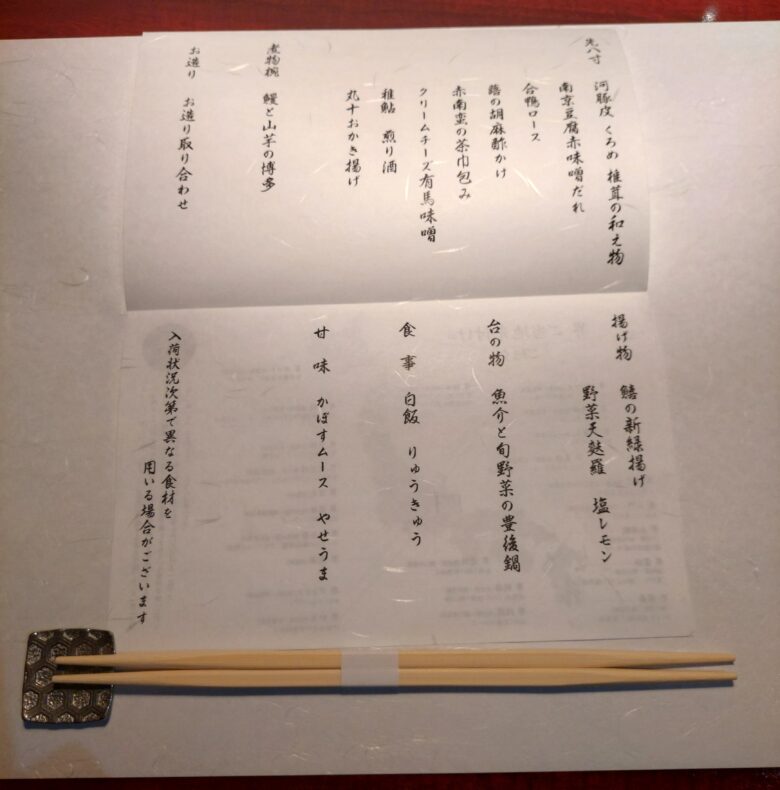 先八寸　河豚皮　くろめ　椎茸の和え物
南京豆腐赤味噌だれ
合鴨ロース
鱚の胡麻酢かけ
赤南蛮の茶巾包み
クリームチーズ有馬味噌
稚鮎　煎り酒
丸十おかき揚げ
煮物椀　鰻と山芋の博多
お造り　お造り取り合わせ
揚げ物　鱚の新緑揚げ
野菜天麩羅　塩レモン
台の物　魚介と旬野菜の豊後鍋
食事　白飯　りゅうきゅう
甘味　かぼすムース　やせうま
入荷状況次第で異なる食材を
用いる場合がございます